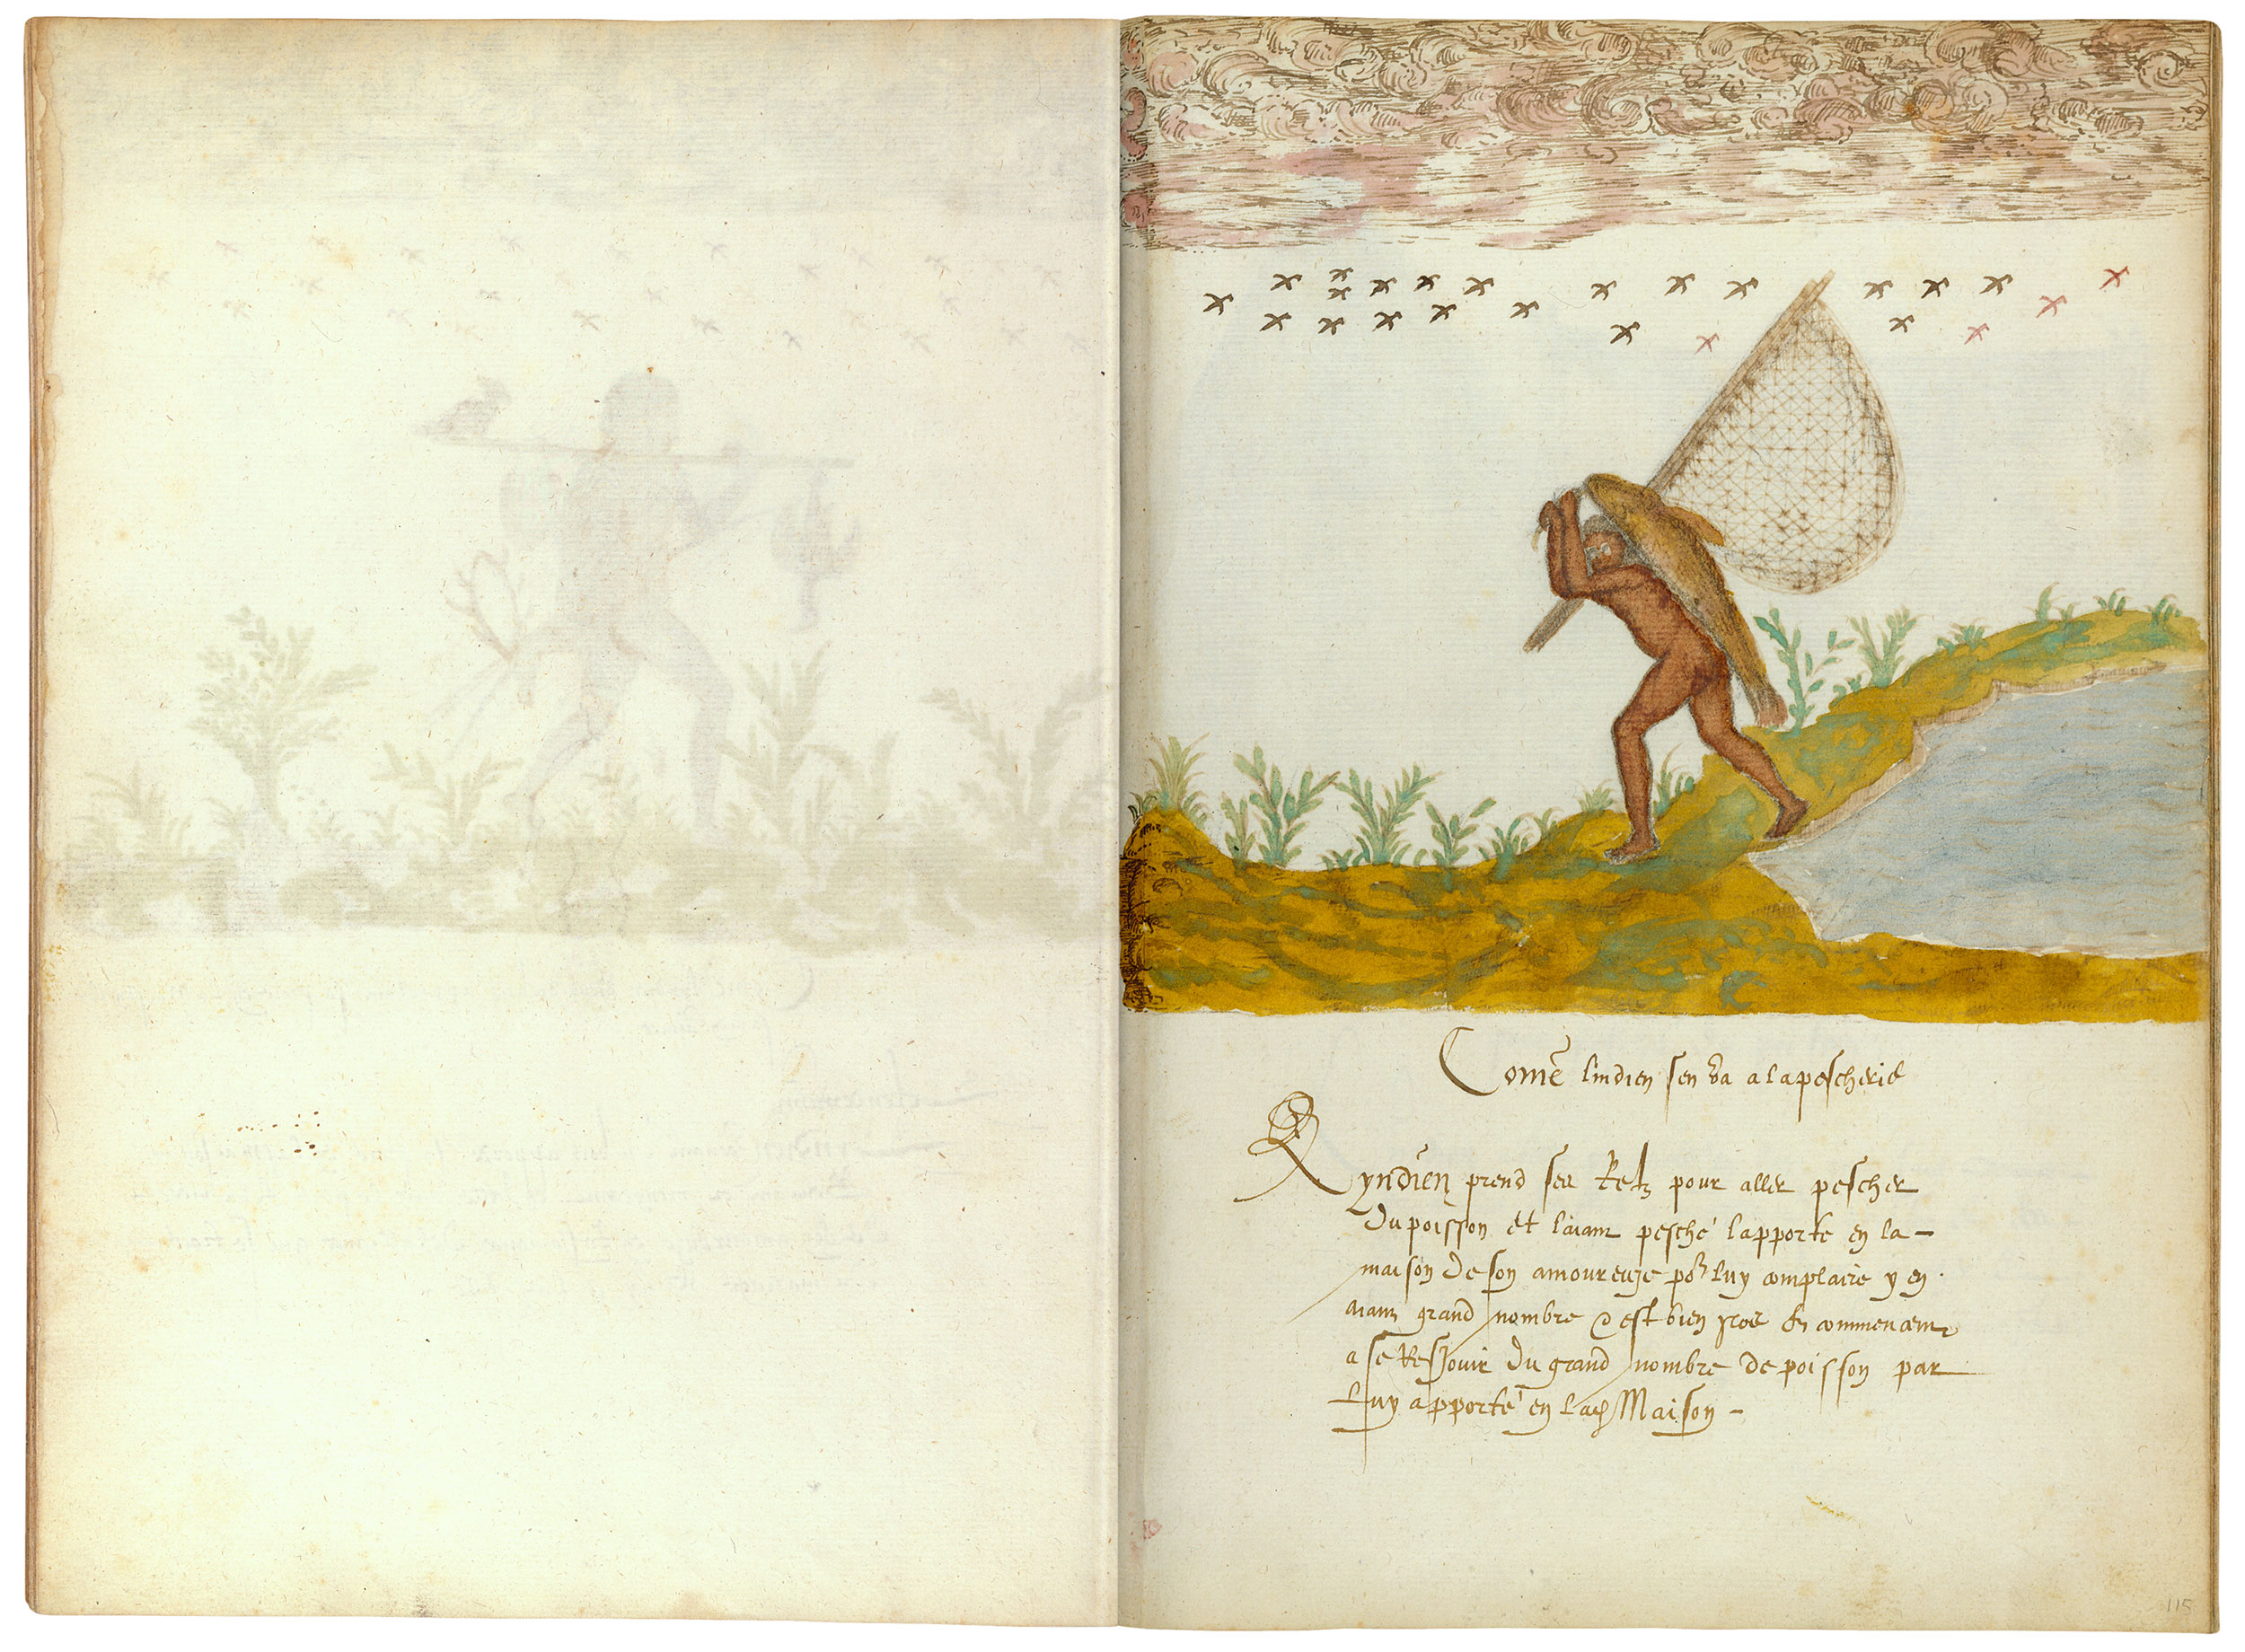 Comē lindien sen va a la pescherie
Lyndien prend ses Retz pour aller pescher
du poisson et laiant pesché lapporte en la -
maison de son amoureuze por luy complaire y en
aiant grand nombre dest bien en commencent
a se Resjouir du grand nombre de poisson par
luy apporté en lad Maison -
115